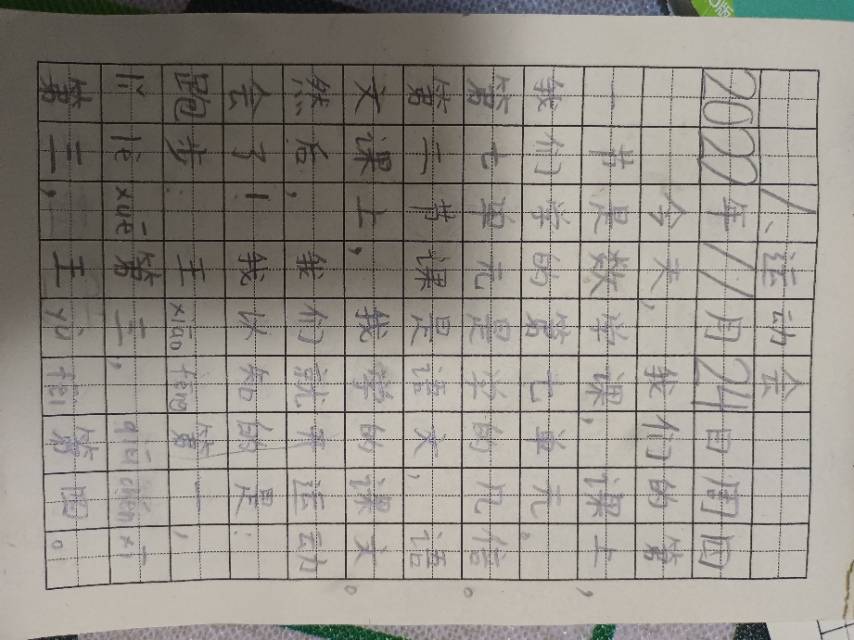 1、运动会
2022年11月24日周四
今天，我们的第
一节是数学课，课上，
我们学的第七单元。
第七单元是学的几倍。
第二节课是语文，语
文课上，我学的课文。
然后，我们就开运动
会了！我认知的是：
跑步：王xiāo téng第一，
lè xuē第二，qiū chén xī
第三，王yù第四。